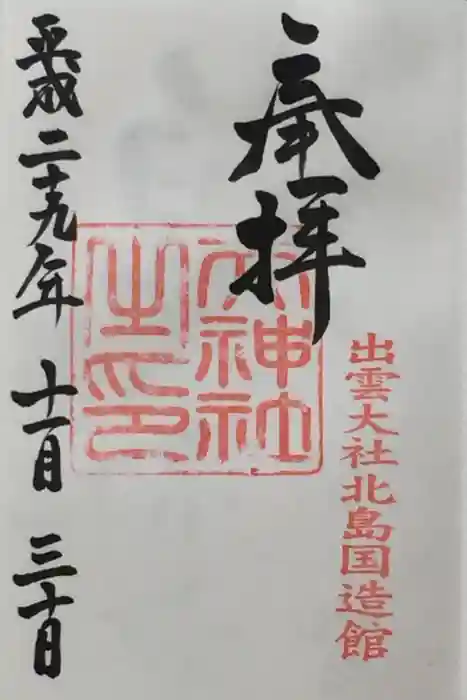 奉拝
出雲大社北島国造館
大神社
之印
平成二十九年 十一月 三十日